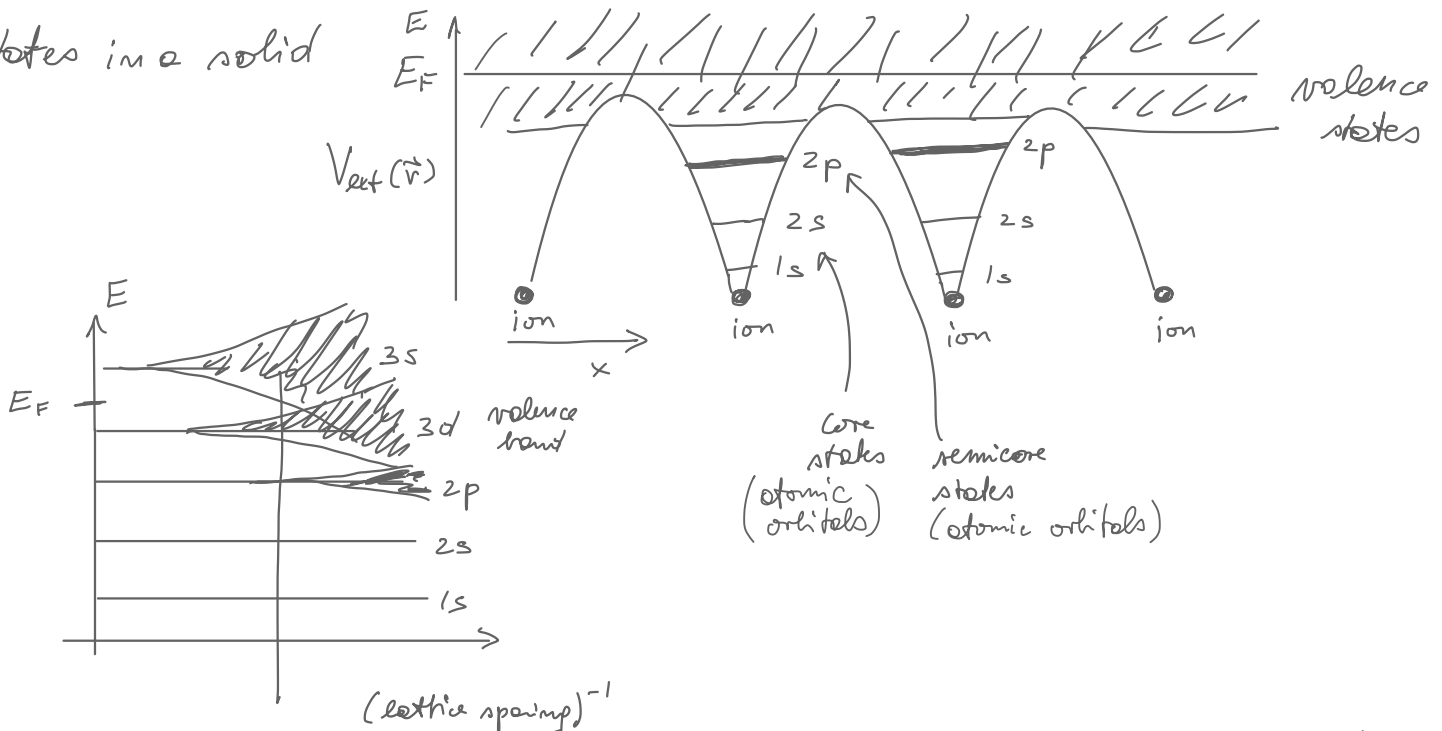 states in a solid
E
E_F
V_ext(r⃗)
valence
states
2p
2s
1s
2p
2s
1s
ion
ion
ion
ion
x
core
states
(atomic
orbitals)
semicore
states
(atomic orbitals)
E
E_F
3s
3d valence
band
2p
2s
1s
(lattice spacing)⁻¹